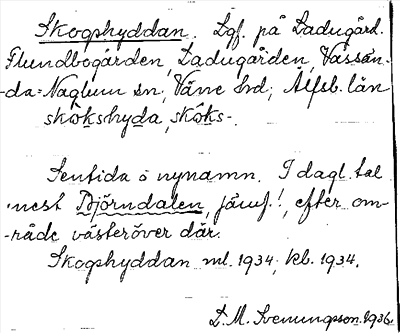 Skogshyddan. Lgf. på Ladugård.
Flundbogården, Ladugården, Vässän-
-da=Naglum sn, Väne hd; Älfsb. län
skòkshyda, skòks-.
Sentida o nynamn. I dagl. tal
mest Björndalen, jämf.!, efter om-
-råde västeröver där.
Skogshyddan ml. 1934, kb. 1934.
D. M. Svenungsson. 1936.